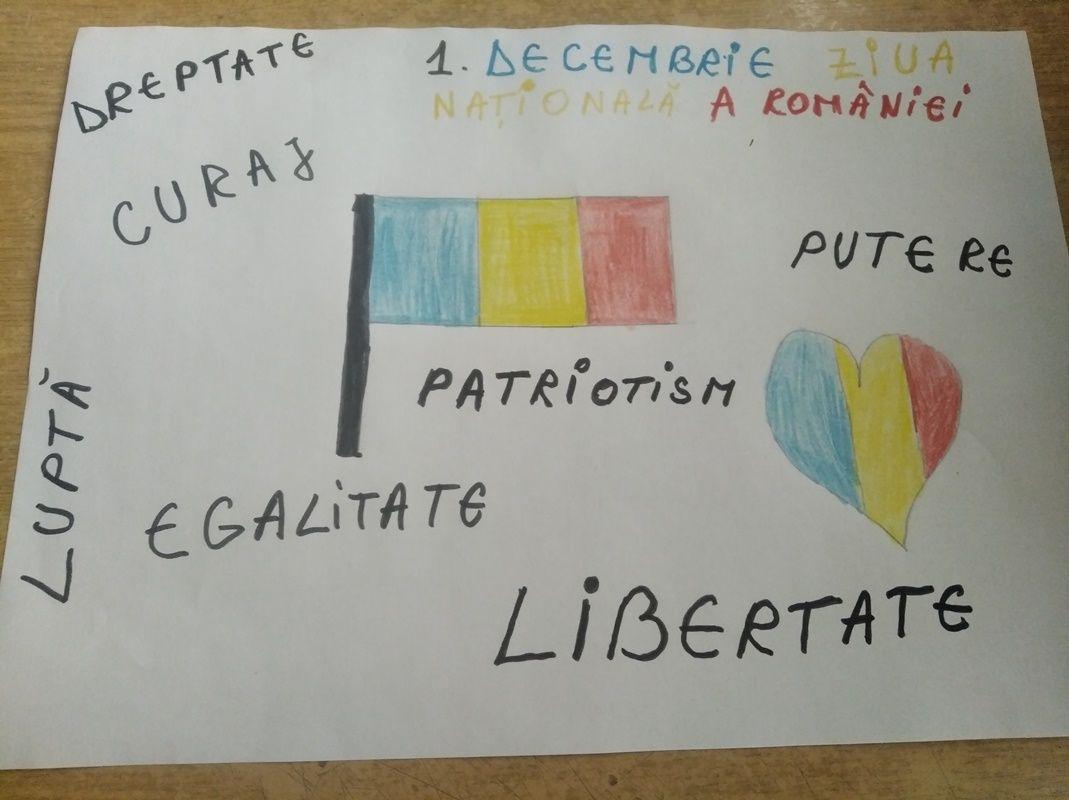 DREPTATE
1. DECEMBRIE ZIUA
NAȚIONALĂ A ROMÂNIEI
CURAJ
PUTERE
PATRIOTISM
LUPTĂ
EGALITATE
LIBERTATE